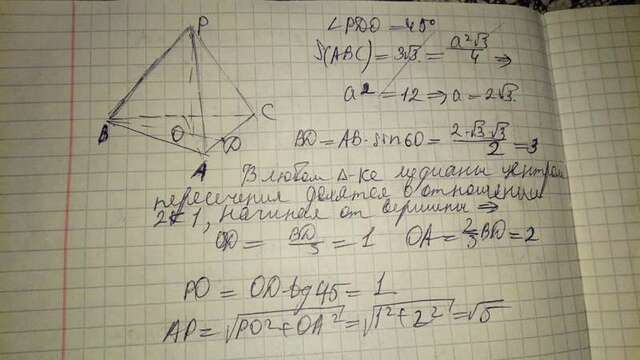 P
B
O
A
D
C
∠PDO = 45°
S(ABC) = 3√3 = a²√3/4 ⇒
a² = 12 ⇒ a = 2√3.
BD = AB · sin60 = 2·√3·√3/2 = 3
В любом Δ-ке медианы центром
пересечения делятся в отношении
2к1, начиная от вершины ⇒
OD = BD/3 = 1 OA = 2/3 BD = 2
PO = OD·tg45 = 1
AP = √(PO² + OA²) = √(1² + 2²) = √5